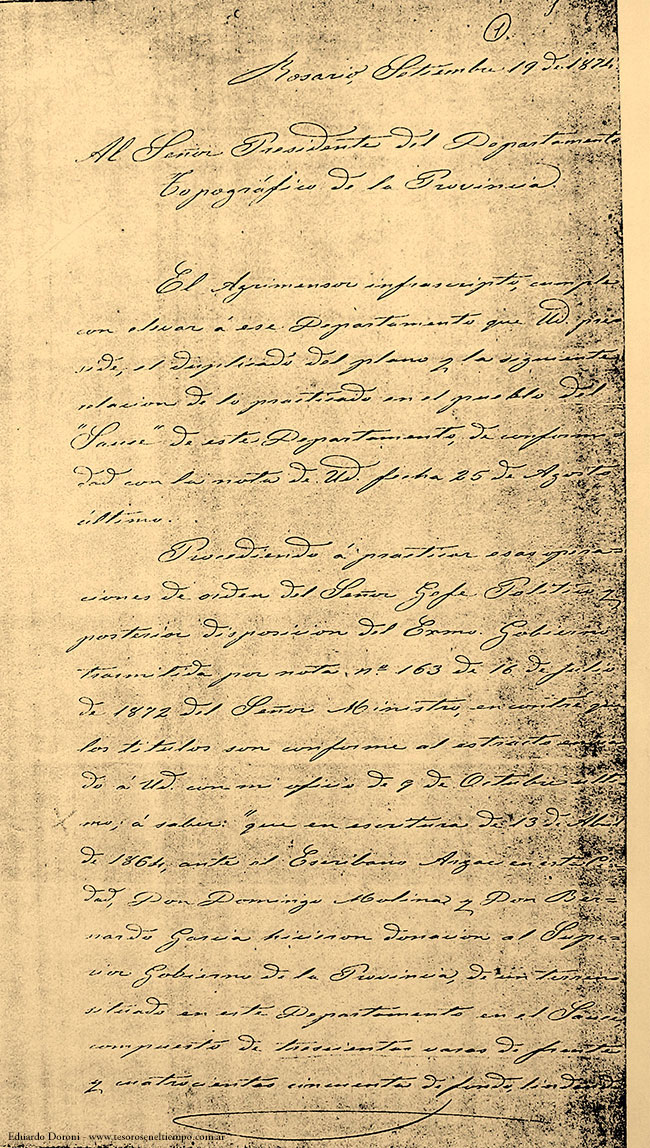 1.
Rosario, Setiembre 19 de 1874.
Al Señor Presidente del Departamento
Topográfico de la Provincia.
El Agrimensor infrascripto, cumple
con elevar á ese Departamento que Ud. pre
side, el duplicado del plano y la siguiente
relacion de lo practicado en el pueblo del
"Sauce" de este Departamento, de conformi
dad con la nota de Ud. fecha 25 de Agosto
último.
Procediendo á practicar esas opera
ciones de orden del Señor Gefe Politico y
posterior disposicion del Exmo. Gobierno
trasmitida por nota nº 163 de 16 de Julio
de 1872 del Señor Ministro, encontré que
los titulos son conforme al estracto
do á Ud. con mi oficio de 9 de Octubre últi
mo; á saber: "que en escritura de 13 de Abril
de 1864, ante el Escribano Arzac en esta Ciu
dad, Don Domingo Molina y Don Ber-
nardo Garcia hicieron donacion al Supe-
rior Gobierno de la Provincia, de un terreno
situado en este Departamento en el Sauce,
compuesto de trescientas varas de frente
y cuatrocientas cincuenta de fondo, lindando
Eduardo Doroni - www.tesoroseneltiempo.com.ar